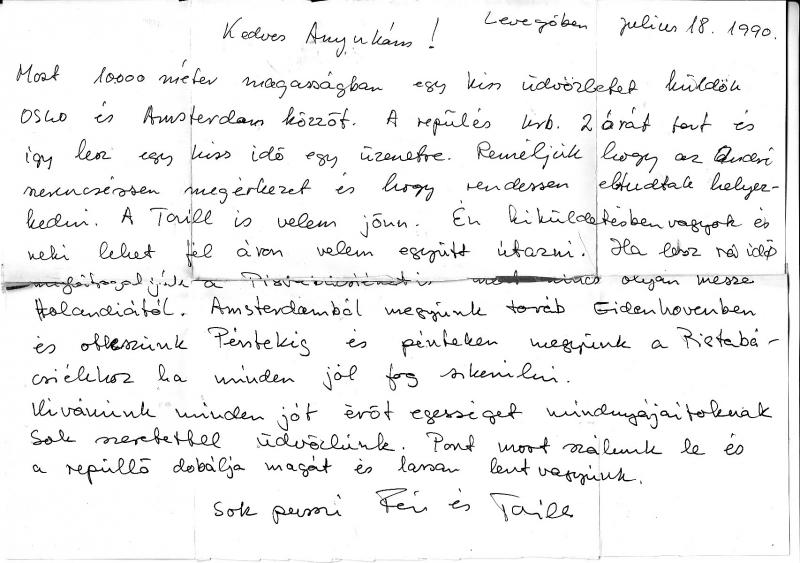 Levegőben július 18. 1990.
Kedves Anyukám!
Most 10.000 méter magasságban egy kiss üdvözletet küldök
Oslo és Amsterdam közzöt. A repülés krb. 2 órát tart és
így lesz egy kiss idő egy üzenetre. Reméljük hogy az
nerencséssen megérkezet és hogy rendessen eltudtak helyez-
kedni. A Taill is velem jönn. Én kiküldetésben vagyok és
neki lehet fél áron velem együtt útazni. Ha lesz rá idő
a is mert nincs olyan messze
Holandiától. Amsterdamból megyünk továb Eidenhovenben
és ottleszünk Péntekig és pénteken megyünk a Pistabá-
csiékhoz ha minden jól fog sikerülni.
Kivánunk minden jót erőt egességet mindnyájaitoknak
Sok szeretettel üdvözlünk. Pont most szálunk le és
a repüllő dobálja magát és lassan lent vagyunk.
Sok puszi Feri és Taill